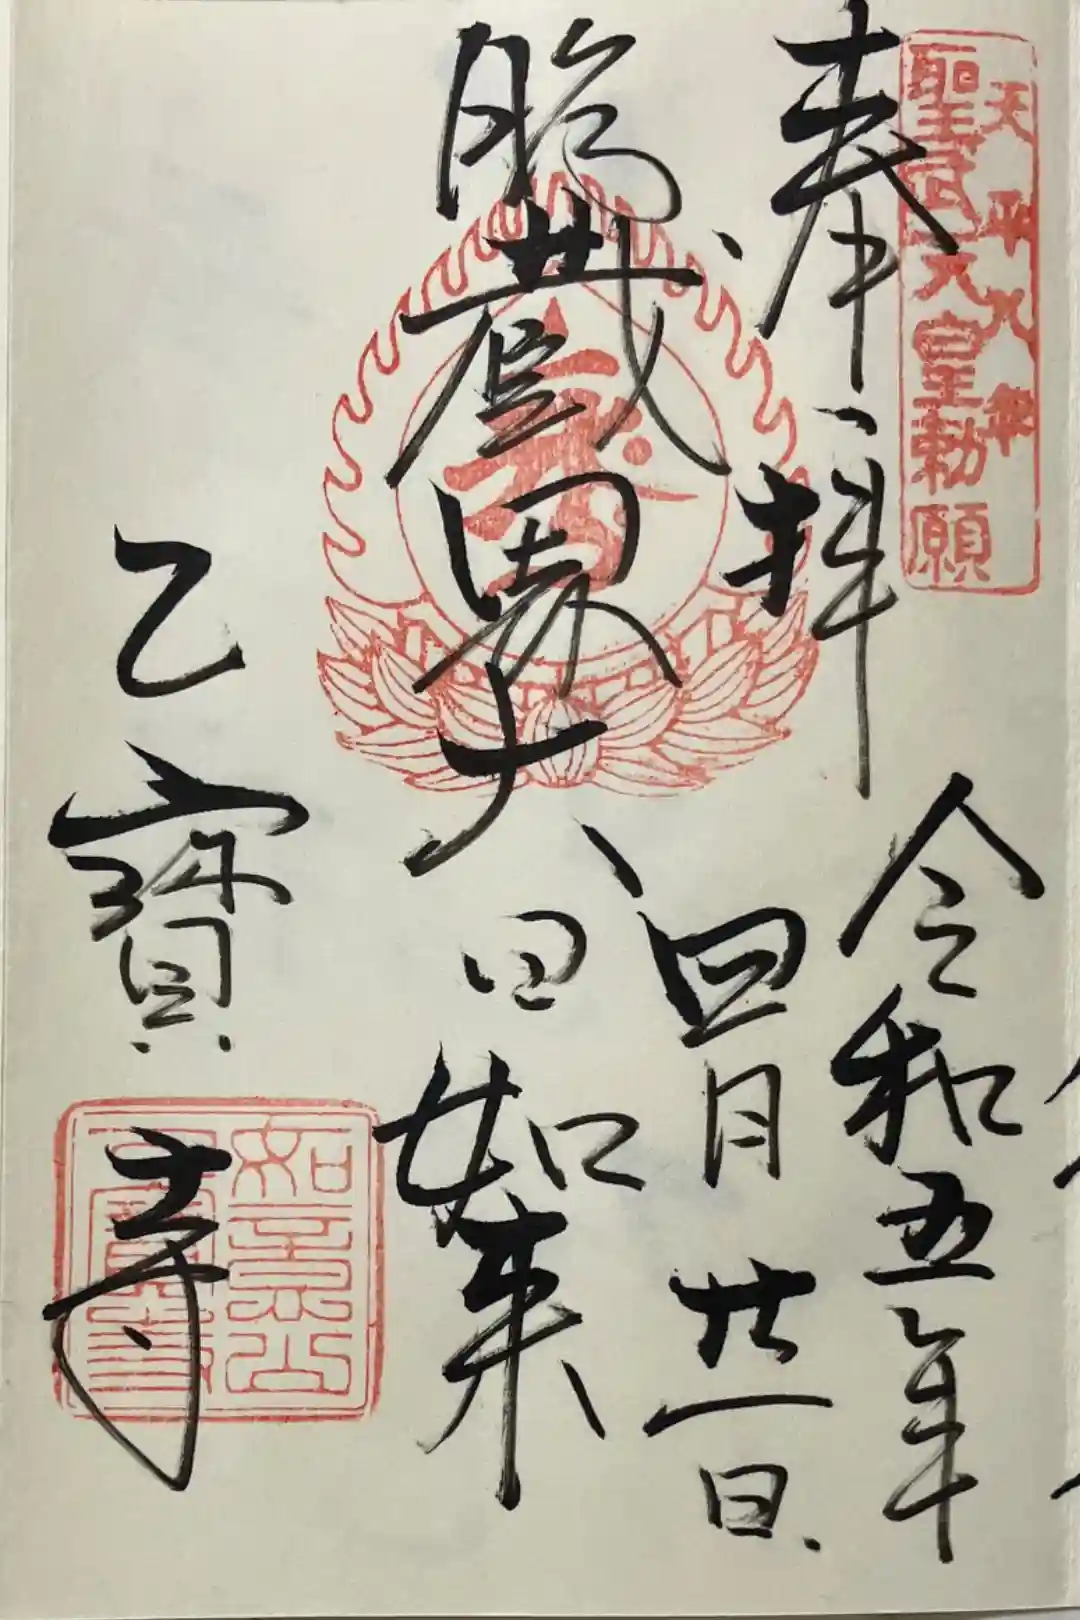 天平八年
聖武天皇勅願
奉拝
令和五年
四月廿一日
胎蔵界大日如来
乙寶寺
如意山
乙寶寺